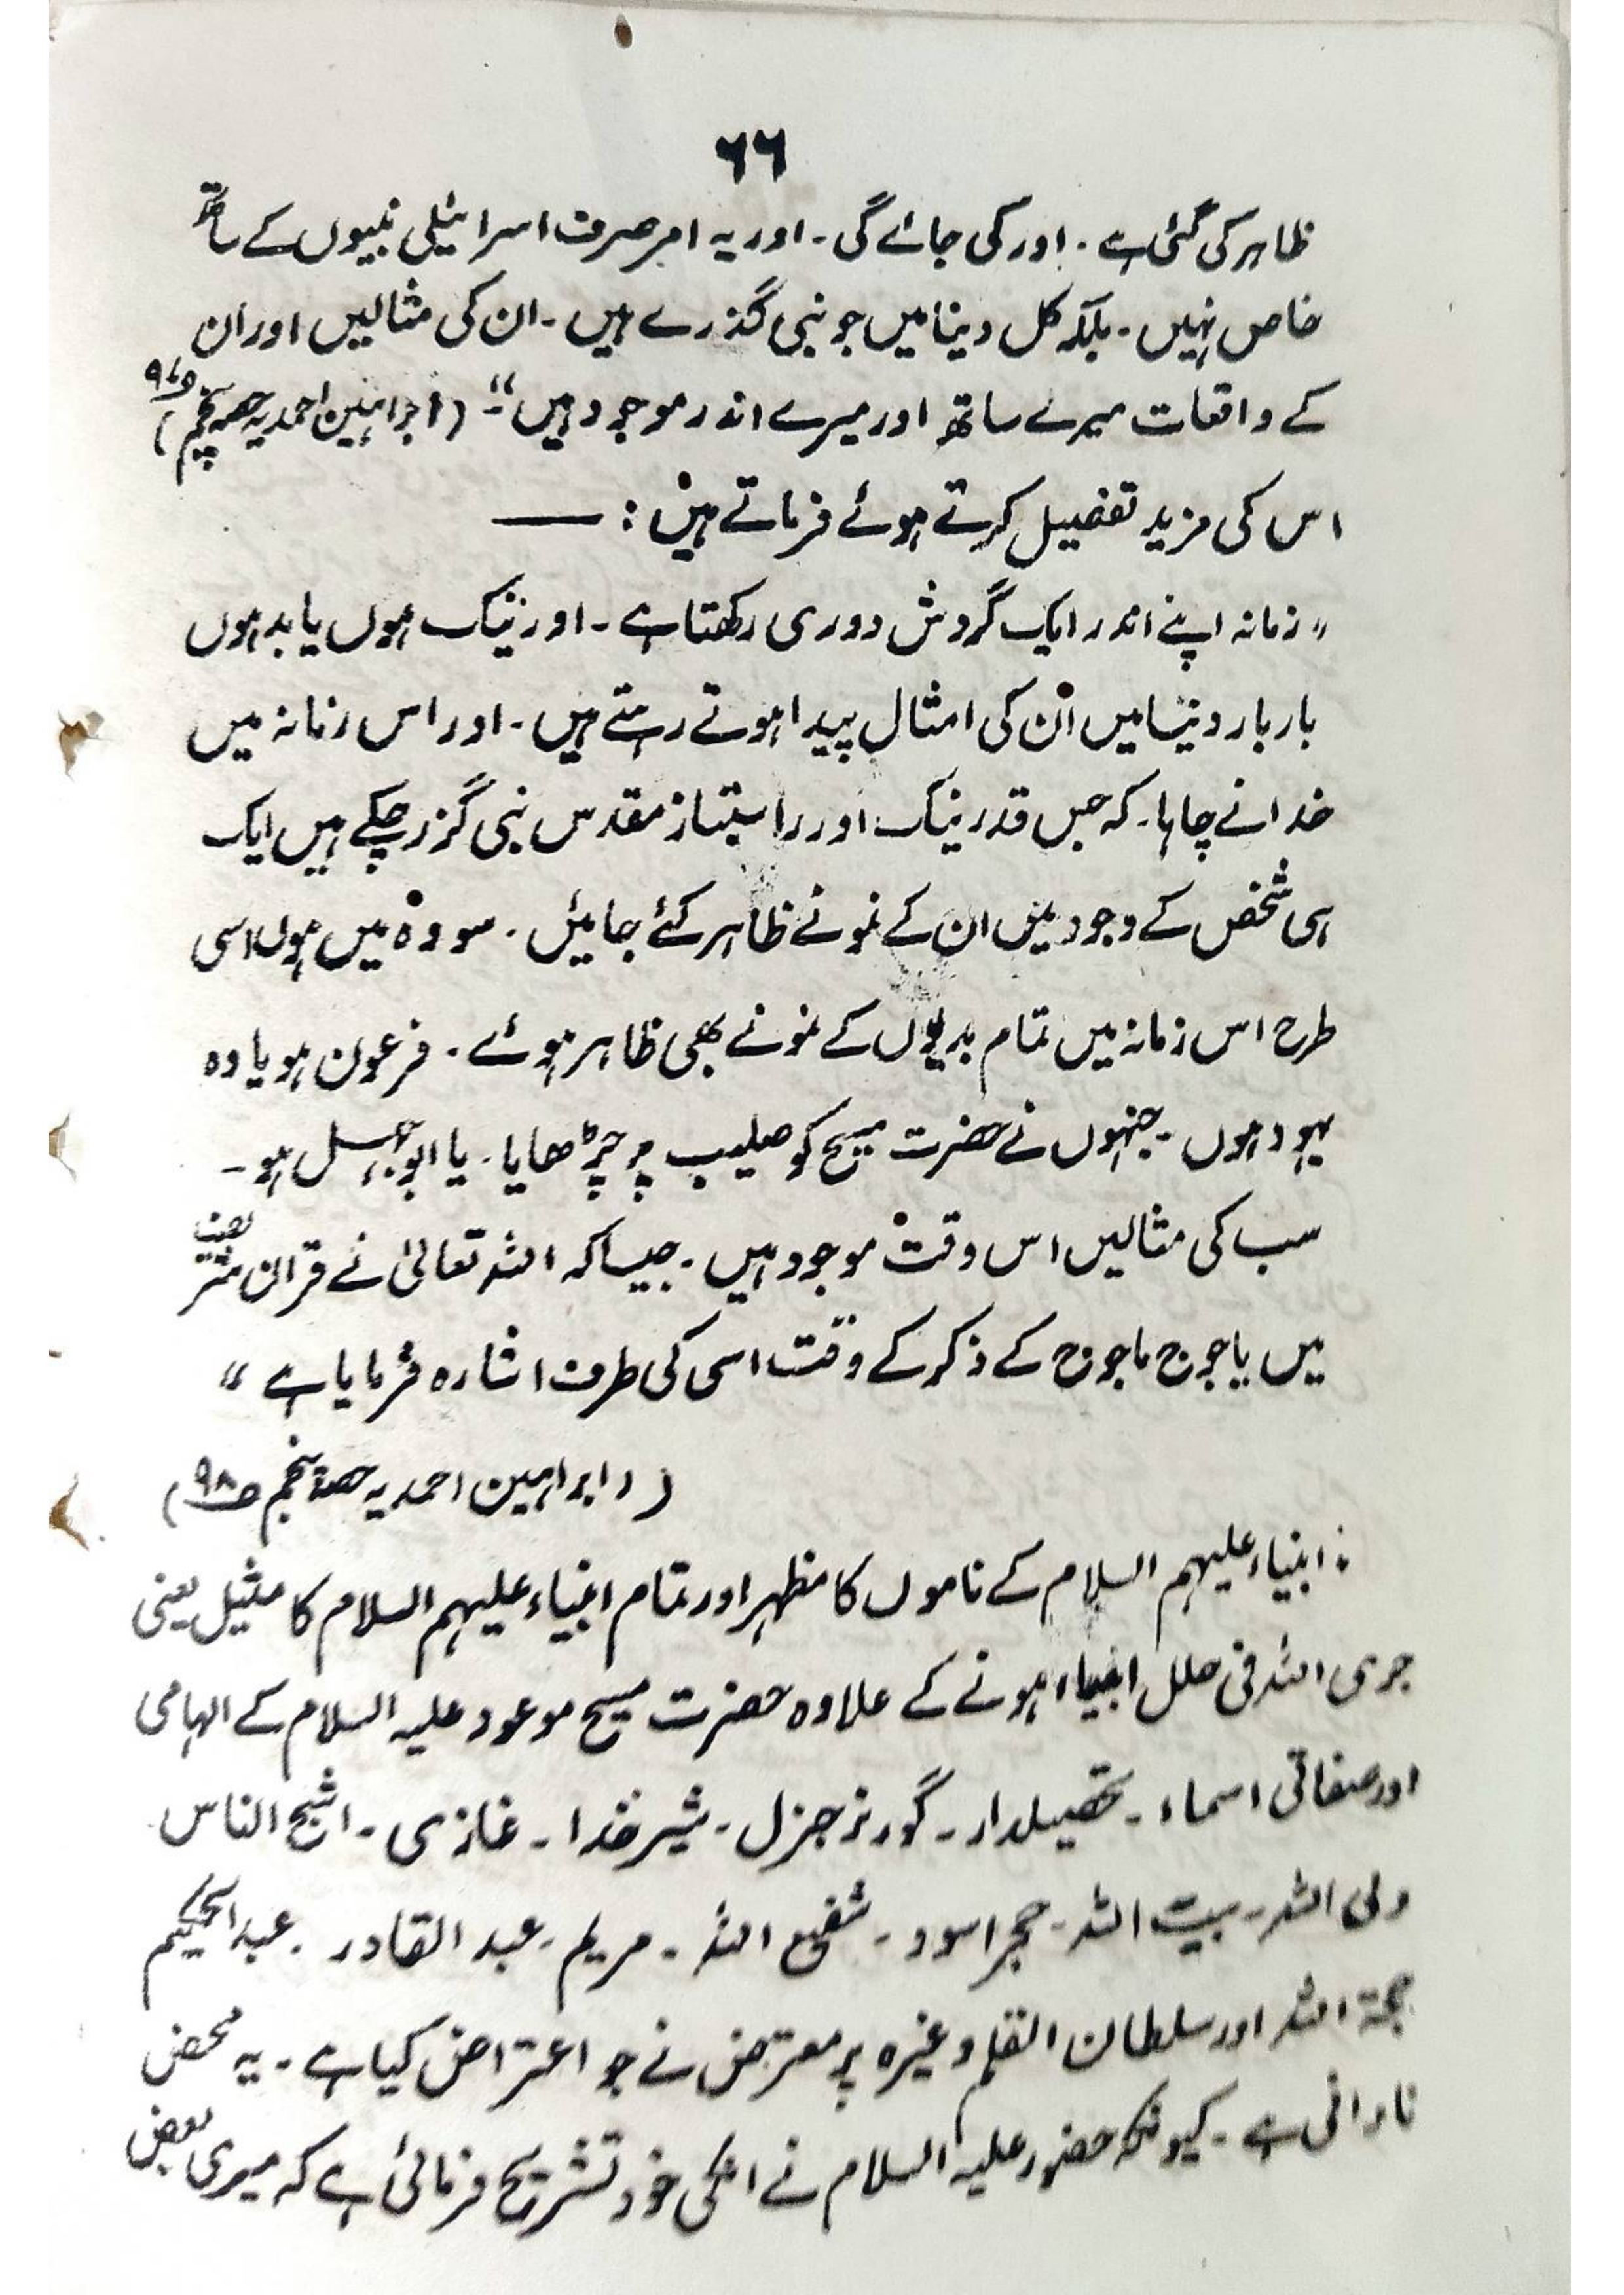 ۶۶
ظاہر کی گئی ہے ۔ اور کی جائے گی ۔ اور یہ امر صرف اسرائیلی نبیوں کے ساتھ
خاص نہیں ۔ بلکہ کل دنیا میں جو نبی گذرے ہیں ۔ ان کی مثالیں اور ان
کے واقعات میرے ساتھ اور میرے اندر موجود ہیں ۔" ( براہین احمدیہ حصہ پنجم )
اس کی مزید تفصیل کرتے ہوئے فرماتے ہیں : ــــ
" زمانہ اپنے اندر ایک گردش دوری رکھتا ہے ۔ اور نیک ہوں یا بد ہوں
بار بار دنیا میں ان کی امثال پیدا ہوتے رہتے ہیں ۔ اور اس زمانہ میں
خدا نے چاہا ۔ کہ جس قدر نیک اور راستباز مقدس نبی گزر چکے ہیں ایک
ہی شخص کے وجود میں ان کے نمونے ظاہر کئے جائیں ۔ سو وہ میں ہوں اسی
طرح اس زمانہ میں تمام بدیوں کے نمونے بھی ظاہر ہوئے ۔ فرعون ہو یا وہ
یہود ہوں ۔ جنہوں نے حضرت مسیح کو صلیب پر چڑھایا ۔ یا ابوجہل ہو ۔
سب کی مثالیں اس وقت موجود ہیں ۔ جیسا کہ اللہ تعالیٰ نے قرآن شریف
میں یاجوج ماجوج کے ذکر کے وقت اسی کی طرف اشارہ فرمایا ہے "
( براہین احمدیہ حصہ پنجم ص۹۸ )
انبیاء علیہم السلام کے ناموں کا مظہر اور تمام انبیاء علیہم السلام کا مثیل یعنی
جری اللہ فی حلل انبیاء ہونے کے علاوہ حضرت مسیح موعود علیہ السلام کے الہامی
اور صفاتی اسماء ۔ تحصیلدار ۔ گورنر جنرل ۔ شیر خدا ۔ غازی ۔ اشجع الناس
ولی اللہ ۔ بیت اللہ ۔ حجر اسود ۔ شفیع اللہ ۔ مریم ۔ عبد القادر ۔ عبد الحکیم
حجۃ اللہ اور سلطان القلم وغیرہ پر معترض نے جو اعتراض کیا ہے ۔ یہ محض
نادانی ہے ۔ کیونکہ حضور علیہ السلام نے اسکی خود تشریح فرمائی ہے کہ میری بعض